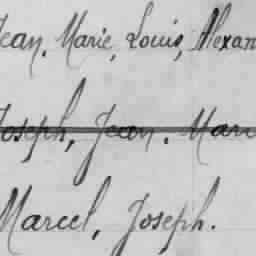 Jean, Marie, Louis, Alexan
Joseph, Jean. Marc
Marcel, Joseph.